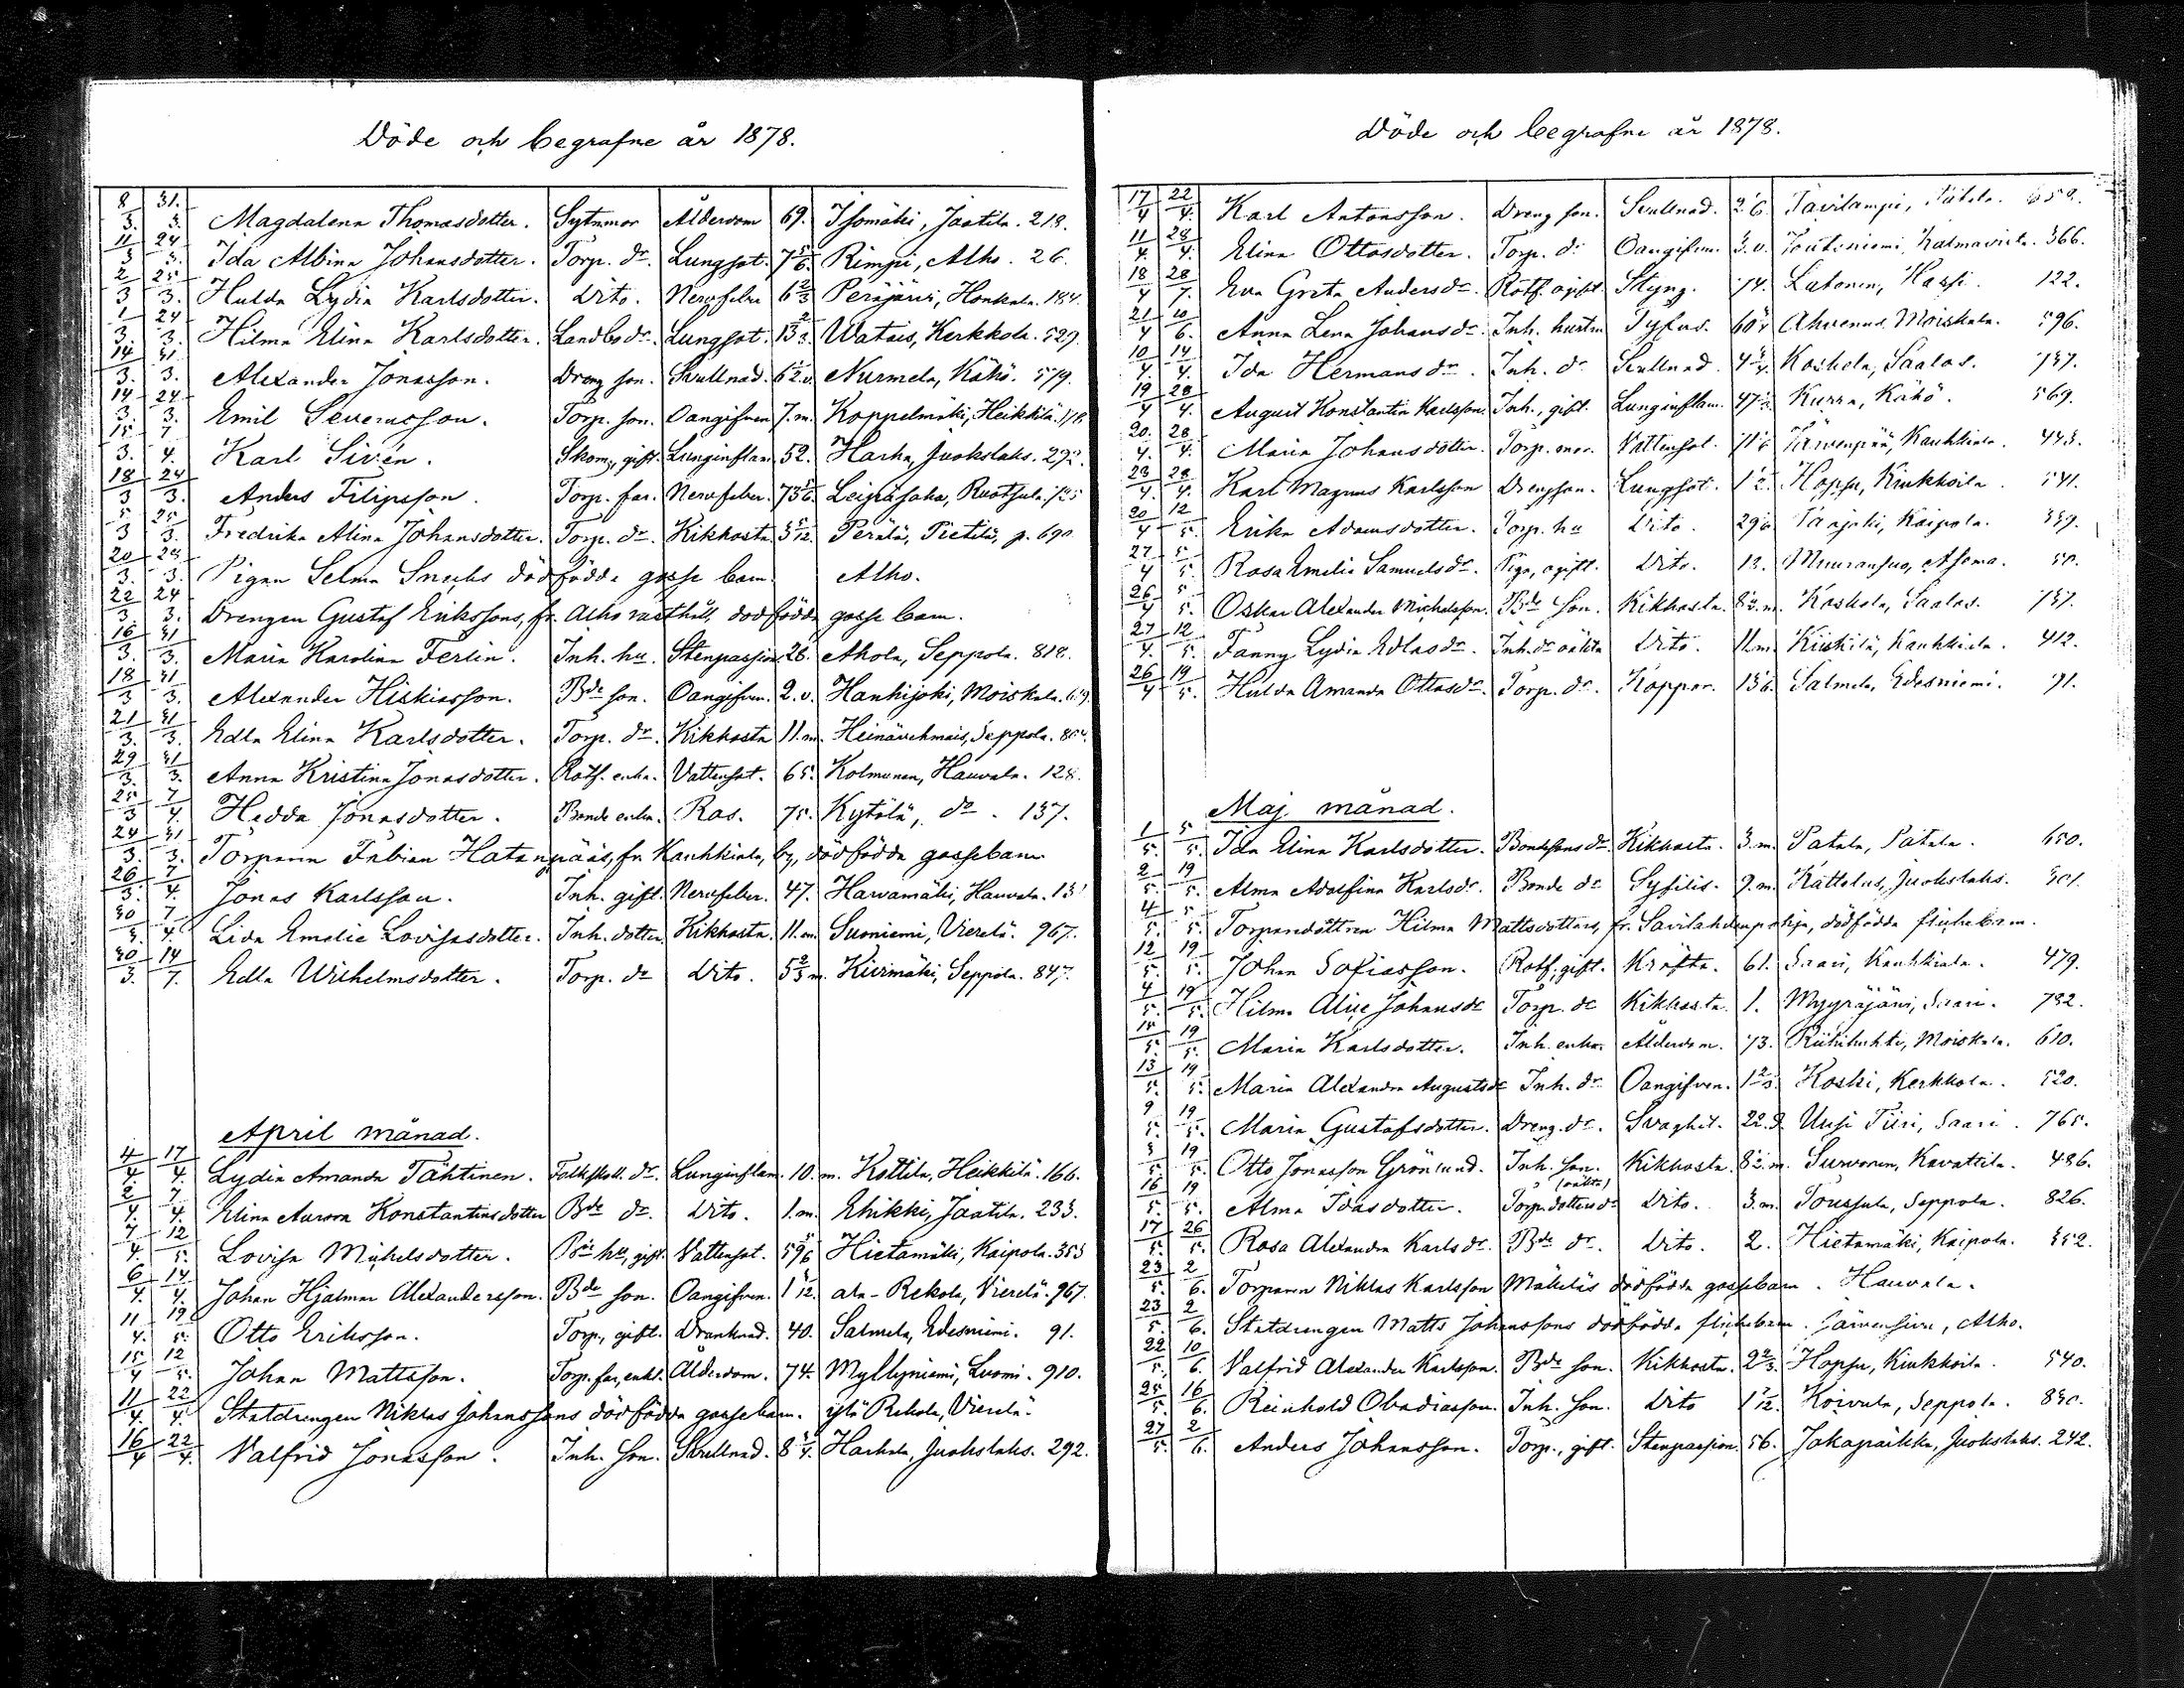 Döde och begrafne år 1878.
8/3. 31./3. Magdalena Thomasdotter. Sytnmor Ålderdom 69. Isomäki, Jaatila. 218.
11/3 24/3. Ida Albina Johansdotter. Torp. dr. Lungsot. 7 5/6. Rimpi, Alho. 26.
2/3 25/3. Hulda Lydia Karlsdotter. Dito. Nervfeber 6 2/3 Peräjärvi, Honkala. 184.
1/3. 24/3. Hilma Elina Karlsdotter. Landbo dr. Lungsot. 13 2/3. Watais, Kerkkola. 529.
14/3. 31/3. Alexander Jonasson. Dreng son. Skullnad. 6 1/2. v. Nurmela, Kähö. 579.
14/3. 24/3. Emil Severinsson. Torp. son. Oangifven 7. m. Koppelmäki, Heikkilä.
15/3. 7/4. Karl Sirén. Skom., gift. Lunginflam. 52. Harha, Juokslaks. 292.
18/3 24/3. Anders Filipsson. Torp. far. Nervfeber. 73 1/6. Leipäsaha, Ruotsula.
5/3 25/3. Fredrika Alina Johansdotter. Torp. dr. Kikhosta 3 5/12. Perälä, Pietilä, p. 690.
20/3. 28/3. Pigan Selma Snecks dödfödde gosse barn. Alho.
22/3 24/3. Drengen Gustaf Erikssons, fr. Alho rusthåll, dödfödda gosse barn.
16/3. 31/3. Maria Karolina Ferlin. Inh. hu. Stenpassion 26. Ahola, Seppola. 818.
18/3 31/3. Alexander Hiskiasson. Bde son. Oangifven. 2. v. Hankijoki, Moiskala.
21/3. 31/3. Edla Elina Karlsdotter. Torp. dr. Kikhosta 11. m. Heinäuchmais, Seppola.
29/3. 31/3. Anna Kristina Jonasdotter. Rotf. enka. Vattensot. 65. Kolmonen, Hauvala. 128.
25/3 7/4. Hedda Jonasdotter. Bonde enka. Ros. 75. Kytölä, do. 137.
24/3. 31/3. Torparen Fabian Hatanpääs, fr. Kauhkiala, by, dödfödda gossebarn
26/3. 7/4. Jonas Karlsson. Inh. gift. Nervfeber. 47. Harvamäki, Hauvala.
30/3. 7/4. Lida Emelie Lovisasdotter. Inh. dotter Kikhosta. 11. m. Suoniemi, Vierelä. 967.
30/3. 14/7. Edla Wilhelmsdotter. Torp. dr Dito. 5 2/3 m. Kivimäki, Seppola. 847.
April månad.
4/4. 17/4. Lydia Amanda Tähtinen. Folkskoll. dr. Lunginflam. 10. m. Kottila, Heikkilä. 166.
2/4. 7/4. Elina Aurora Konstantinsdotter Bde dr. Dito. 1. m. Ehikki, Jaatila. 233.
7/4. 12/5. Lovisa Mikelsdotter. Bde hu, gift. Vattensot. 59 5/6 Hietamäki, Kaipola. 353
6/4. 14/4. Johan Hjalmar Alexandersson. Bde son. Oangifven. 1 1/12. ala-Rekola, Vierelä. 967.
11/4. 19/5. Otto Eriksson. Torp., gift. Drunknad. 40. Salmela, Edesniemi. 91.
15/4 12/5. Johan Mattsson. Torp. far, enkl. Ålderdom. 74. Myllyniemi, Luomi. 910.
11/4. 22/4. Statdrengen Niklas Johanssons dödfödda gossebarn. ylö Rekola, Vierelä.
16/4 22/4. Valfrid Jonasson. Inh. son. Skullnad. 8 3/4. Harhala, Juokslaks. 292.
Döde och begrafne år 1878.
17/4 22/4. Karl Antonsson. Dreng son. Skullnad. 2 1/6. Savilampi, Pätala. 659.
11/4. 28/4. Elina Ottosdotter. Torp. dr Oangifven. 3. v. Joutsniemi, Kalmavirta. 366.
18/4 28/7. Eva Greta Andersdr. Rotf. ogift. Styng. 74. Lätonen, Hassi. 122.
21/4 10/6. Anna Lena Johansdr. Inh. hustru Tyfus. Ahvenus, Moiskala. 596.
10/4. 14/4. Ida Hermansdr. Inh. dr Skullnad. 4 3/4. Koskela, Saalas. 737.
19/4 28/4. August Konstantin Karlsson. Inh., gift. Lunginflam. Kurra, Kähö. 569.
20./4. 28/4. Maria Johansdotter. Torp. mor. Vattensot. Järvenpää, Kauhkiala. 443.
23/4. 28/4. Karl Magnus Karlsson Drengson. Lungsot. 1 1/2. Hopsu, Kiukkoila. 541.
20/4 12/5. Erika Adamsdotter. Torp. hu Dito. Kaipola. 339.
27/4 5/5. Rosa Emelie Samuelsdr. Piga, ogift. Dito. 12. Muuransuo, Asoma. 50.
26/4 5/5. Oskar Alexander Michelsson. Bde son. Kikhosta. 8 1/2. m. Koskela, Saalas. 737.
27/4. 12/5. Fanny Lydia Edlasdr. Inh. dr oäkta Dito. 11. m. Kiukilä, Kauhkiala. 412.
26/4 19/5. Hulda Amanda Ottosdr. Torp. dr. Koppor. Salmela, Edesniemi. 91.
Maj månad.
1/5. 5/5. Ida Elina Karlsdotter. Bondesons dr Kikhosta. 3. m. Patala, Patala. 650.
2/5. 19/5. Alma Adolfina Karlsdr. Bonde dr Syfilis. 9. m. Kättelus, Juokslaks. 301.
4/5. 5/5. Torparedottren Hilma Mattsdotters, fr. Savilahdenpohja, dödfödda flickebarn.
12/5. 19/5. Johan Sofiasson. Rotf., gift. Kräfta. 61. Saari, Kauhkiala. 479.
4/5. 19/5. Hilma Alise Johansdr Torp. dr Kikhosta. 1. Myyräjärvi, Saari. 782.
15/5. 19/5. Maria Karlsdotter. Inh. enka. Ålderdom. 73. Riihiluhti, Moiskala. 610.
13/5. 19/5. Maria Alexandra Augustsdr Inh. dr Oangifven. 1 2/3. Koski, Kerkkola. 520.
9/5. 19/5. Maria Gustafsdotter. Dreng. dr. Svaghet. 22. d. Uusi Tiiri, Saari. 765.
3/5. 19/5. Otto Jonasson Grönlund. Inh. son. Kikhosta. 8 1/2. m. Survonen, Kavattila. 486.
16/5. 19/5. Alma Idasdotter. Torp. dotters dr (oäkta) Dito. 3. m. Toussula, Seppola. 826.
17/5. 26/5. Rosa Alexandra Karlsdr. Bde dr. Dito. 2. Hietamäki, Kaipola. 352.
23/5. 2/6. Torparen Niklas Karlsson Mäkeläs dödfödda gossebarn. Hauvala.
23/5. 2/6. Statdrengen Matts Johanssons dödfödda flickebarn. Alho.
22/5. 10/6. Valfrid Alexander Karlsson. Bde son. Kikhosta. 2 2/3. Hopsu, Kiukkoila. 540.
25/5. 16/6. Reinhold Obadiasson. Inh. son. Dito 1 1/12. Koivula, Seppola. 830.
27/5. 2/6. Anders Johansson. Torp., gift. Stenpassion 56. Jokapaikka, Juokslaks. 242.